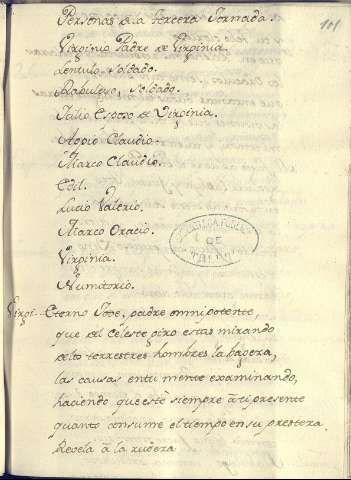 Personas de la tercera Jornada.
101
Virginio Padre de Virginia.
Lentulo soldado.
Soldado.
Julio Esposo de Virginia.
Appio Claudio.
Marco Claudio.
Edil.
Lucio Valerio.
Marco Oracio.
Virginia.
Numitorio.
DE
Virgi.. Eterno Jove, padre omnipotente,
que del celeste giro estas mirando
delos terrestres hombres la baxera,
las causas entu mente examinando,
haciendo que esté siempre àti presente
quanto consume el tiempo en su presteza.
Revela à la rudeza